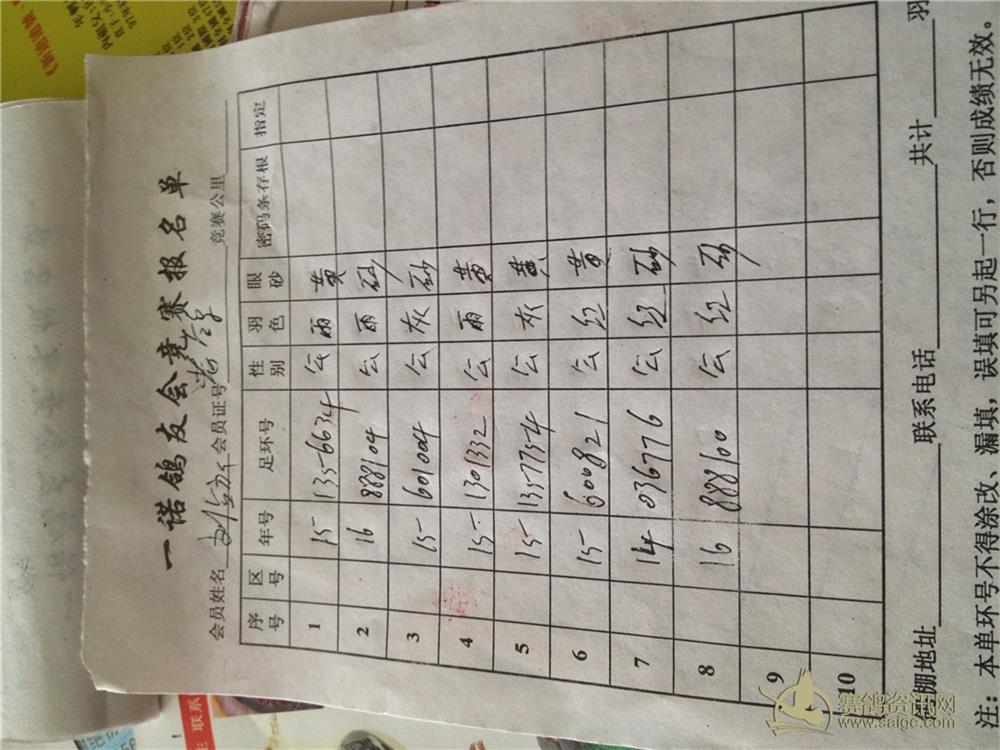 一诺鸽友会竞赛报名单
会员姓名 会员证号 竞赛公里
序号 区号 年号 足环号 性别 羽色 眼砂 密码条存根 指定
1 15 1356634 公 雨 黄
2 16 888104 公 雨 砂
3 15 601004 公 灰 砂
4 15 1301332 公 雨 黄
5 15 1357754 公 灰 黄
6 15 600821 公 红 黄
7 14 036776 公 红 砂
8 16 888100 公 红 砂
9
10
棚地址 联系电话 共计 羽
注：本单环号不得涂改、漏填，误填可另起一行，否则成绩无效。
赛鸽资讯网
www.saige.com